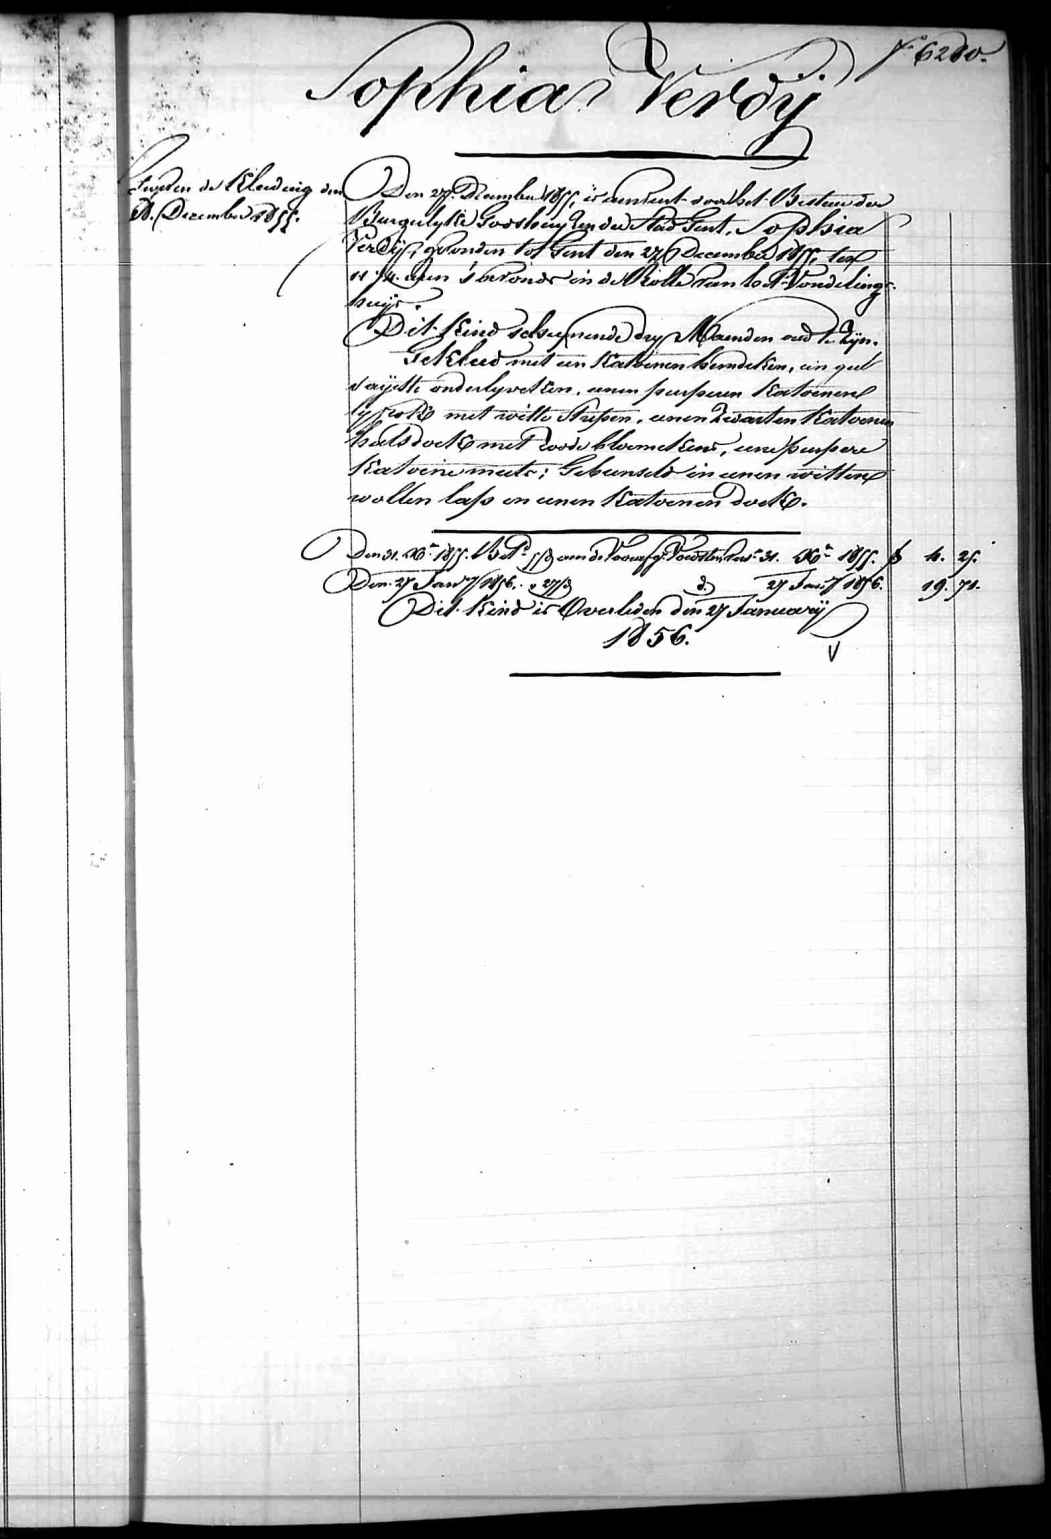 F.° 6280.
Sophia Verdÿ
den
December 1855.
Den 27. December 1855, is aenveert door het Bestuer der
Burgelyke Godshuyzen der Stad Gent, Sophia
Verdÿ, gevonden tot Gent den 27 December 1855, ten
11 3/4 uren 's avonds in de Rolle van het Vondelings-
huys.
Dit Kind schynende dry Maenden oud te zyn.
Gekleed met een Katoenen hemdeken, een geel
sayette onderlyveken, eenen purperen Katoenen
lyfrok met witte strepen, eenen zwarten Katoenen
halsdoek met roode bloemekens, eene purpere
Katoene muts; Gebunseld in eenen witten
wollen lap en eenen Katoenen doek.
Den 31. Xb. 1855. Bet. aen de Voedster 31. Xb. 1855. f 4. 25.
Den 27 Janry 1856. 27 Janry 1856. 19. 71.
Dit Kind is Overleden den 27 January
1856.